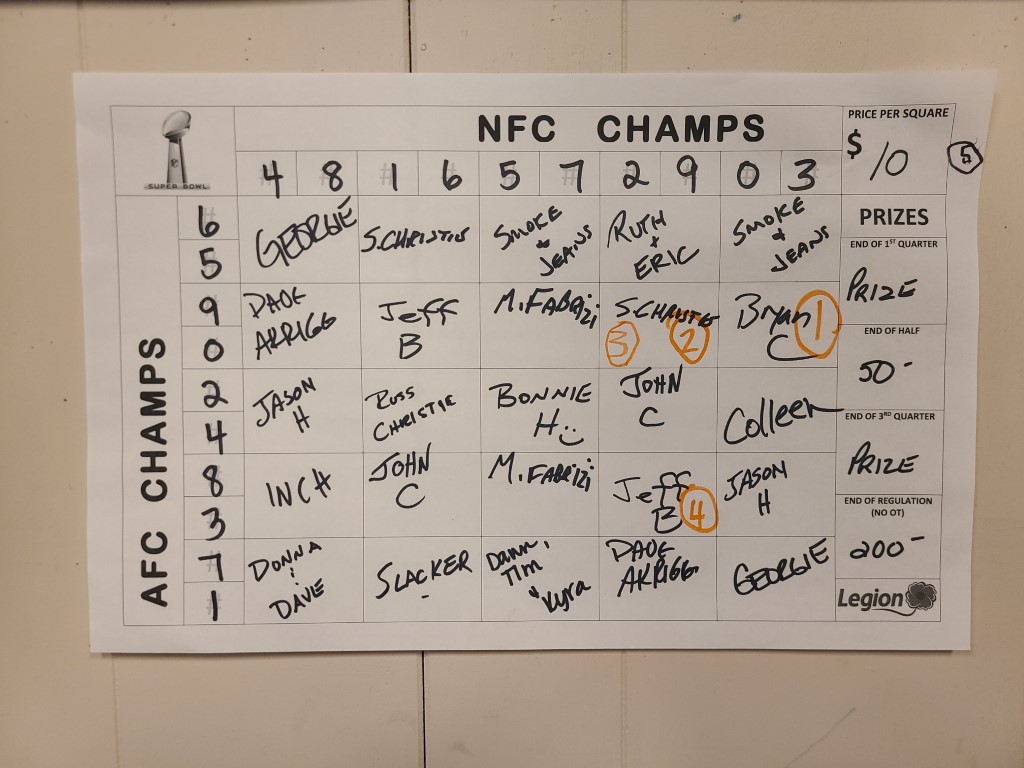 NFC CHAMPS
PRICE PER SQUARE
$ 10
5
SUPER BOWL
4 8 1 6 5 7 2 9 0 3
PRIZES
AFC CHAMPS
6
5
GEORGIE
S.CHRISTIE
SMOKE
& JEANS
RUTH
+
ERIC
SMOKE
& JEANS
END OF 1ST QUARTER
PRIZE
9
0
ARRIGG
Jeff
B
M. FABRIZI
3 2
Bryan
C
1
END OF HALF
50-
2
4
JASON
H
RUSS
CHRISTIE
BONNIE
H
JOHN
C
Colleen
END OF 3RD QUARTER
PRIZE
8
3
INCH
JOHN
C
M. FABRIZI
Jeff
B
4
JASON
H
END OF REGULATION
(NO OT)
200-
7
1
DONNA
DAVIE
SLACKER
Tim
& Kyra
ARRIGG
GEORGIE
Legion